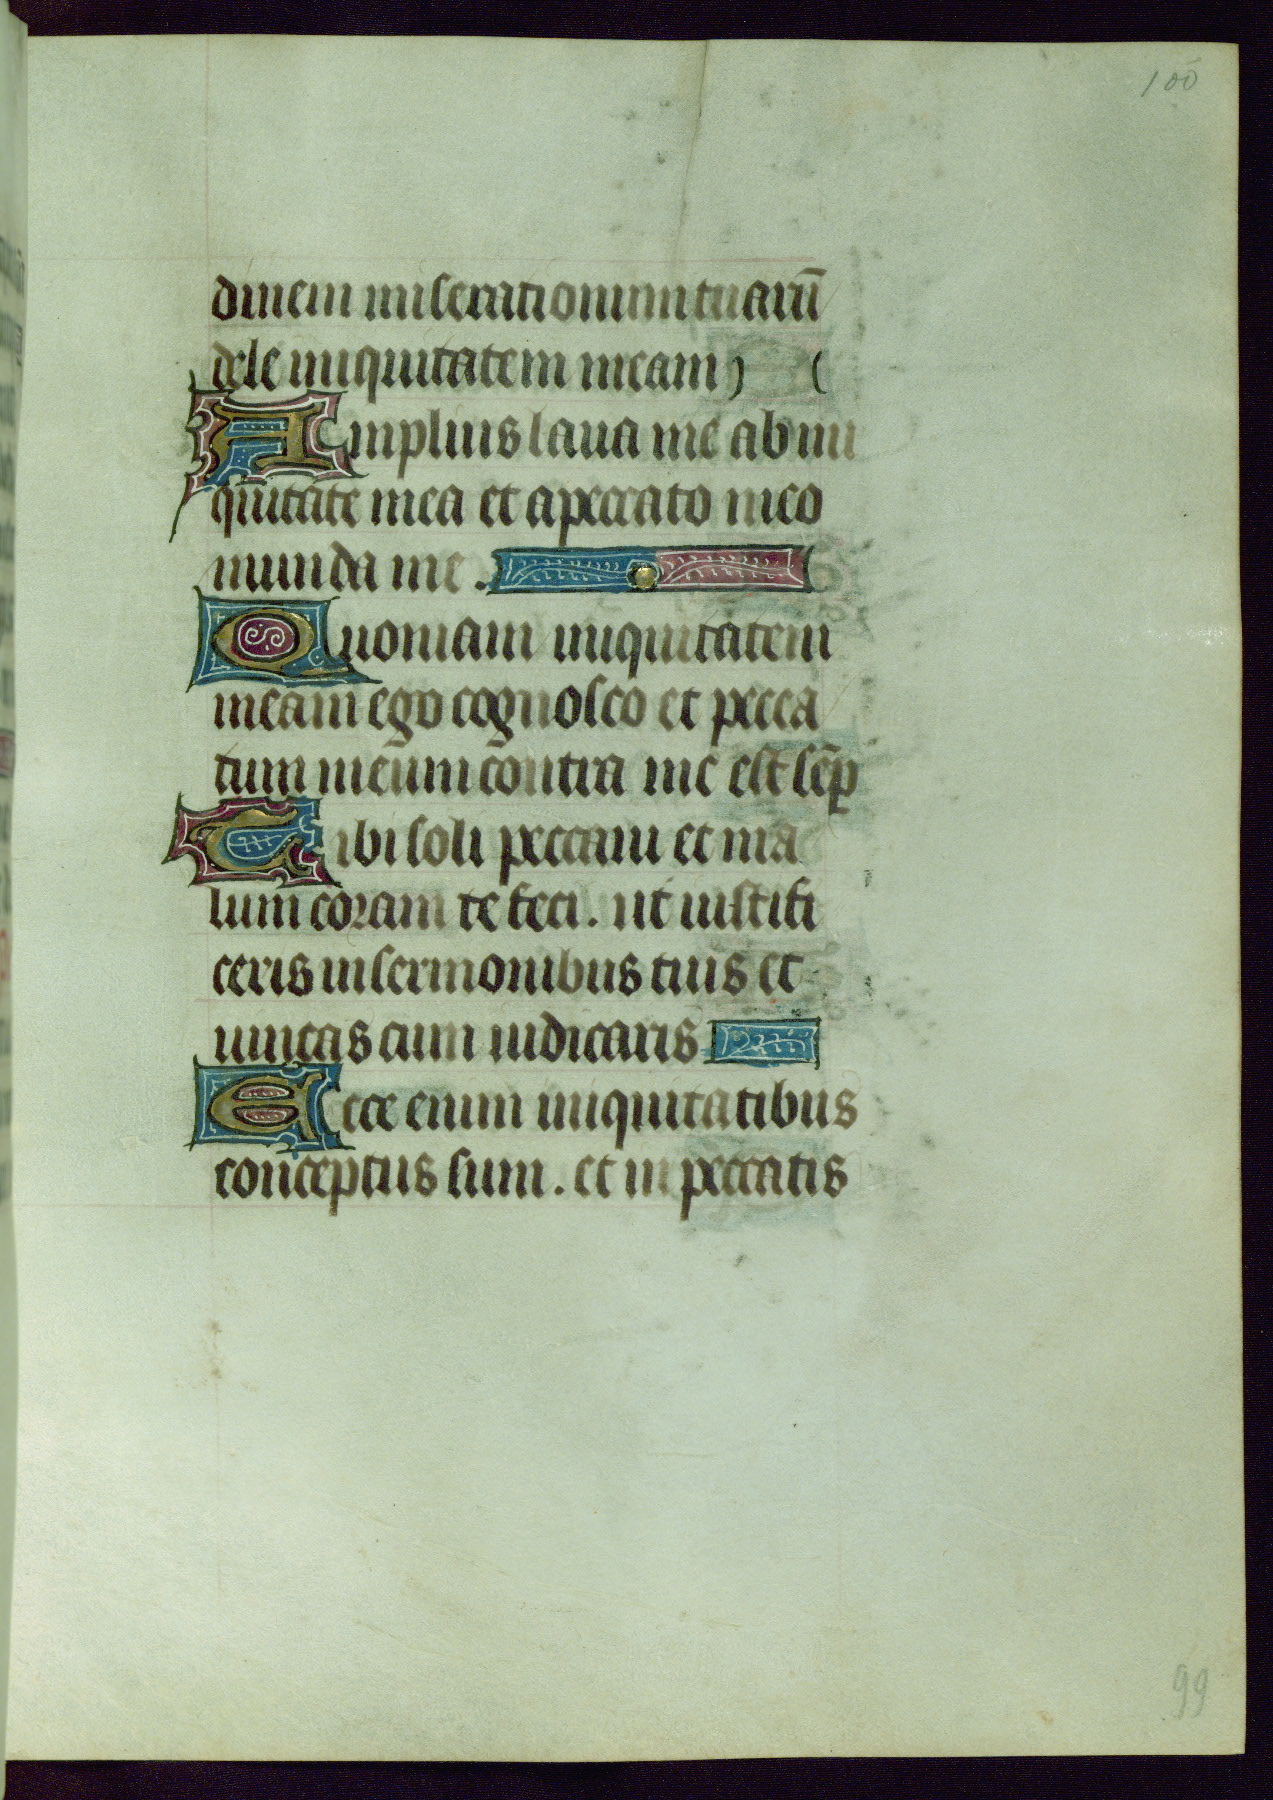 100
dinem miserationum tuarū
dele iniquitatem meam
Ampluis laua me ab ini
quitate mea et a peccato meo
munda me .
Quoniam iniquitatem
meam ego cognosco et pecca
tum meum contra me est sēp
Tibi soli peccaui et ma
lum coram te feci . ut iustifi
ceris in sermonibus tuis et
uincas cum iudicaris
Ecce enim iniquitatibus
conceptus sum . et in peccatis
99